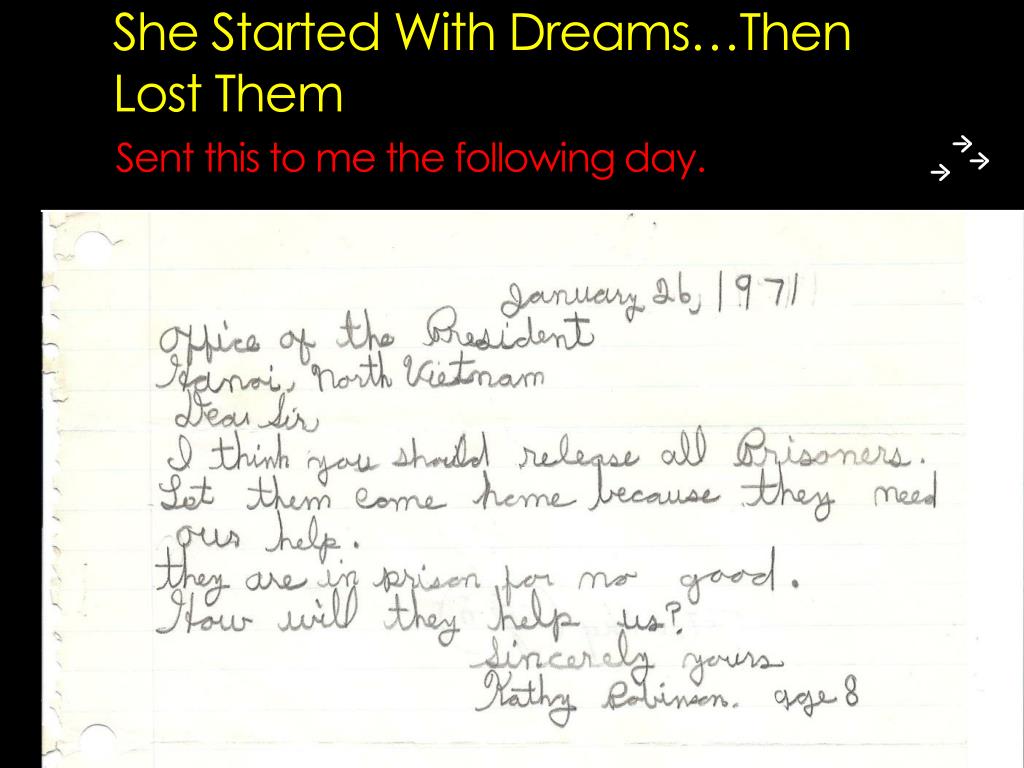 She Started With Dreams...Then
Lost Them
Sent this to me the following day.
January 26, 1971
Office of the President
Hanoi, North Vietnam
Dear Sir
I think you should release all Prisoners.
Let them come home because they need
our help.
they are in prison for no good.
How will they help us?
Sincerely yours
Kathy Robinson. age 8